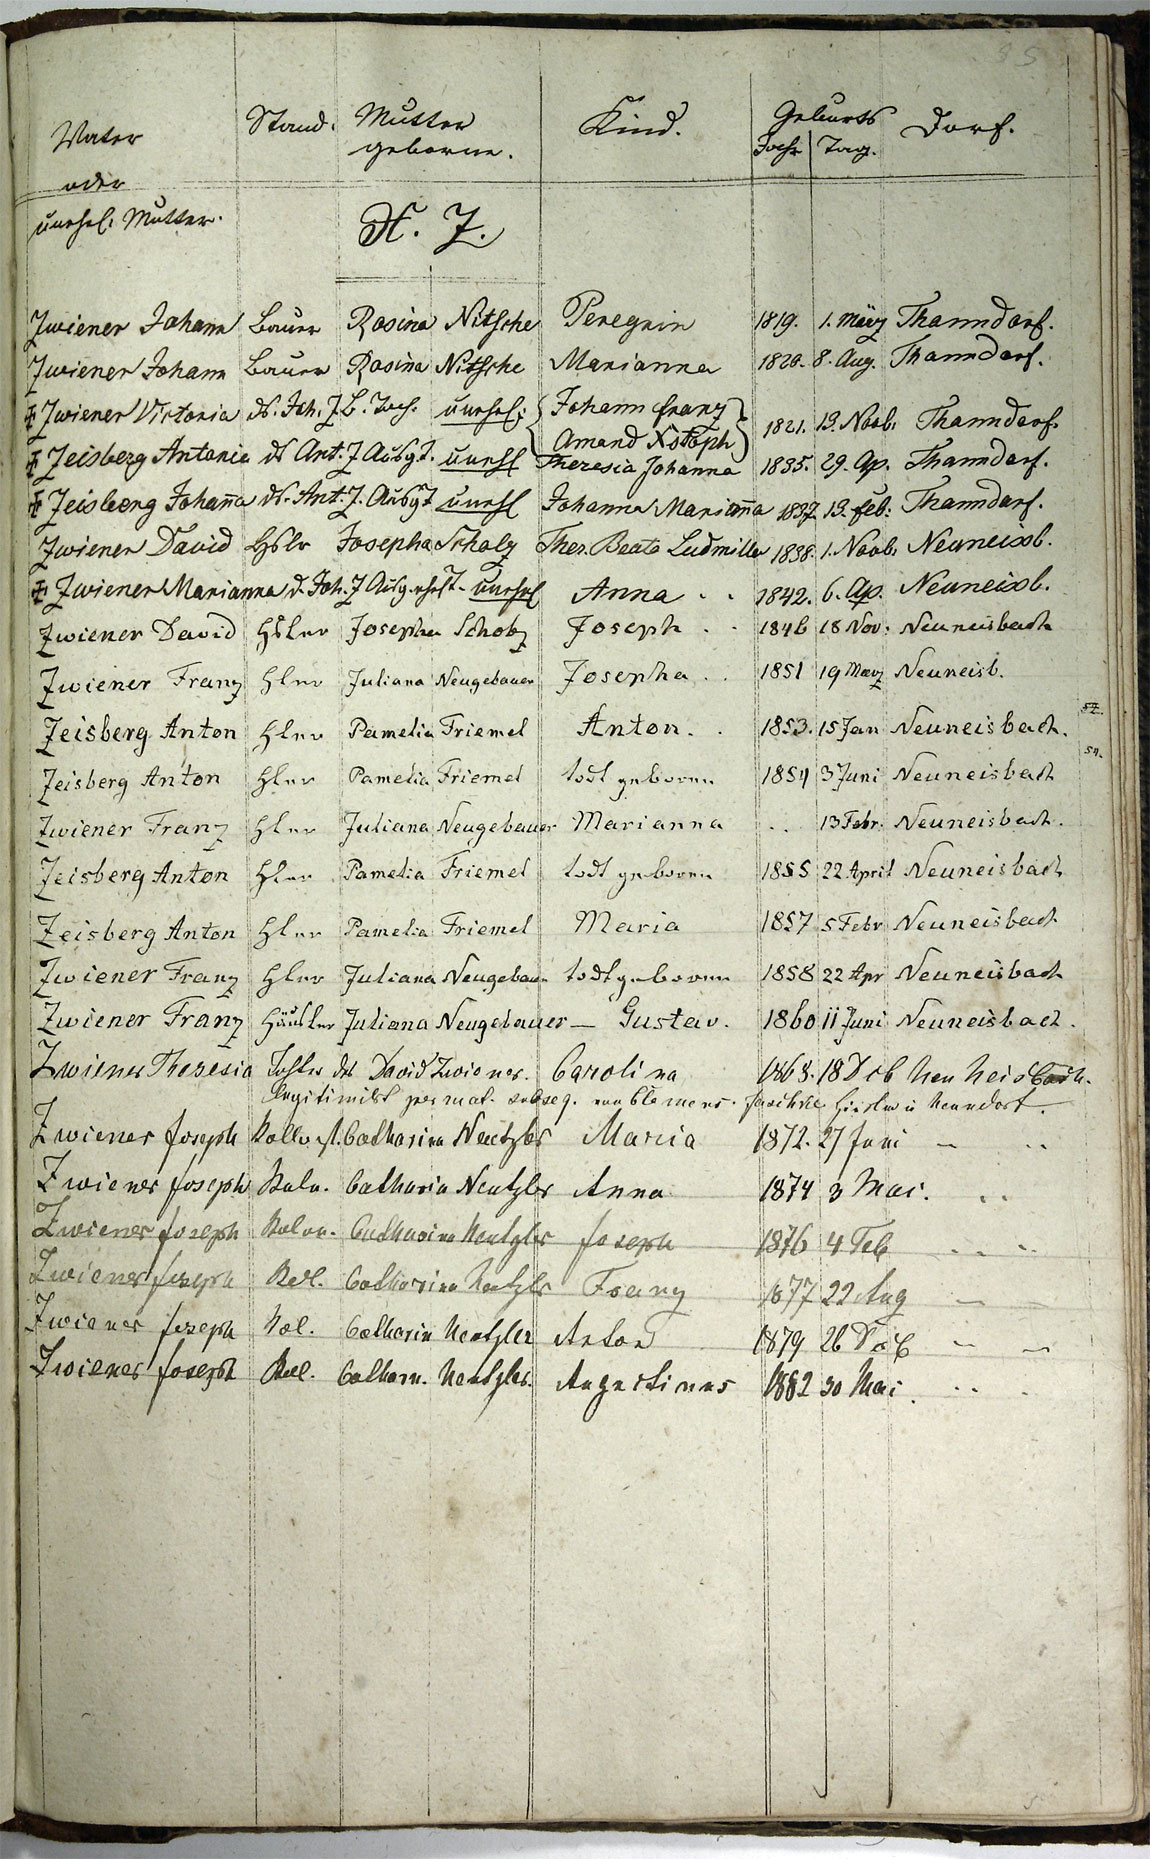 Vater Stand. Mutter Kind. Geburts Dorf.
oder geborne. Jahr Tag.
unehel. Mutter.
Z.
Zwiener Johann Bauer Rosina Nitsche Peregrin 1819. 1. März Thanndorf.
Zwiener Johann Bauer Rosina Nitsche Marianna 1820. 8. Aug. Thanndorf.
Zwiener Victoria ds. Joh. Z B. Toch. unehel: Johann Franz
Amand Xstoph 1821. 13. Novb. Thanndorf.
Zeisberg Antonia ds Ant. Z Ausgt. unehl Theresia Johanna 1835. 29. Ap. Thanndorf.
Zeisberg Johanna ds. Ant. Z. Ausgt unehl Johanna Marianna 1837 13. Feb: Thanndorf.
Zwiener David Hslr Josepha Scholz Ther. Beata Ludmilla 1838. 1. Novb. Neuneissb.
Zwiener Marianna d. Joh. Z unehel Anna 1842. 6. Ap. Neuneissb.
Zwiener David Hsler Josepha Scholz Joseph 1846 18 Nov: Neuneisbach
Zwiener Franz Hler Juliana Neugebauer Josepha 1851 19 März Neuneisb.
Zeisberg Anton Hler Pamelia Friemel Anton 1853. 15 Jan Neuneisbach.
Zeisberg Anton Hler Pamelia Friemel todt geboren 1854 3 Juni Neuneisbach 54.
Zwiener Franz Hler Juliana Neugebauer Marianna .. 13 Febr. Neuneisbach.
Zeisberg Anton Hler Pamelia Friemel todt geboren 1855 22 April Neuneisbach
Zeisberg Anton Hler Pamelia Friemel Maria 1857 5 Febr Neuneisbach
Zwiener Franz Hler Juliana Neugebauer todtgeboren 1858 22 Apr Neuneisbach
Zwiener Franz Häusler Juliana Neugebauer — Gustav. 1860 11 Juni Neuneisbach.
Zwiener Theresia Tochter des David Zwiener. Carolina 1868. 18 Dcb Neu Neisbach.
legitimirt per mat. subseq. von Clemens Neundorf.
Zwiener Joseph Catharina Nentzler Maria 1872. 27 Juni — ..
Zwiener Joseph Catharin Nentzler Anna 1874 3 Mai. ..
Zwiener Joseph Catharina Nentzler Joseph 1876 4 Feb .. ..
Zwiener Joseph Catharina Nentzler Franz 1877 22 Aug —
Zwiener Joseph Catharin Nentzler Anton 1879 26 — —
Zwiener Joseph Cathar. Nentzler. Augustinus 1882 30 Mai .. .